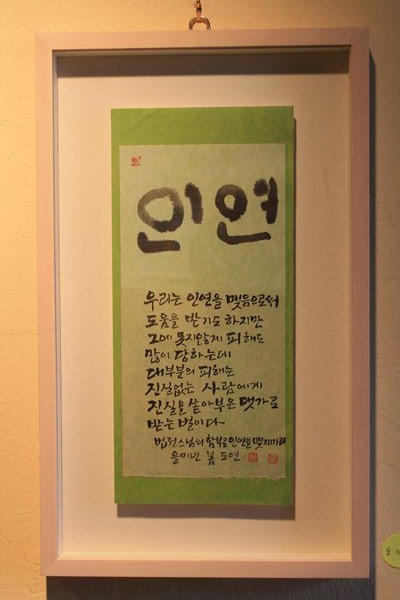 인연
우리는 인연을 맺음으로써
도움을 받기도 하지만
그에 못지않게 피해도
많이 당하는데
대부분의 피해는
진실없는 사람에게
진실을 쏟아부은 댓가로
받는 벌이다
법정스님의 함부로 인연을 맺지마라
을미년 봄 도연